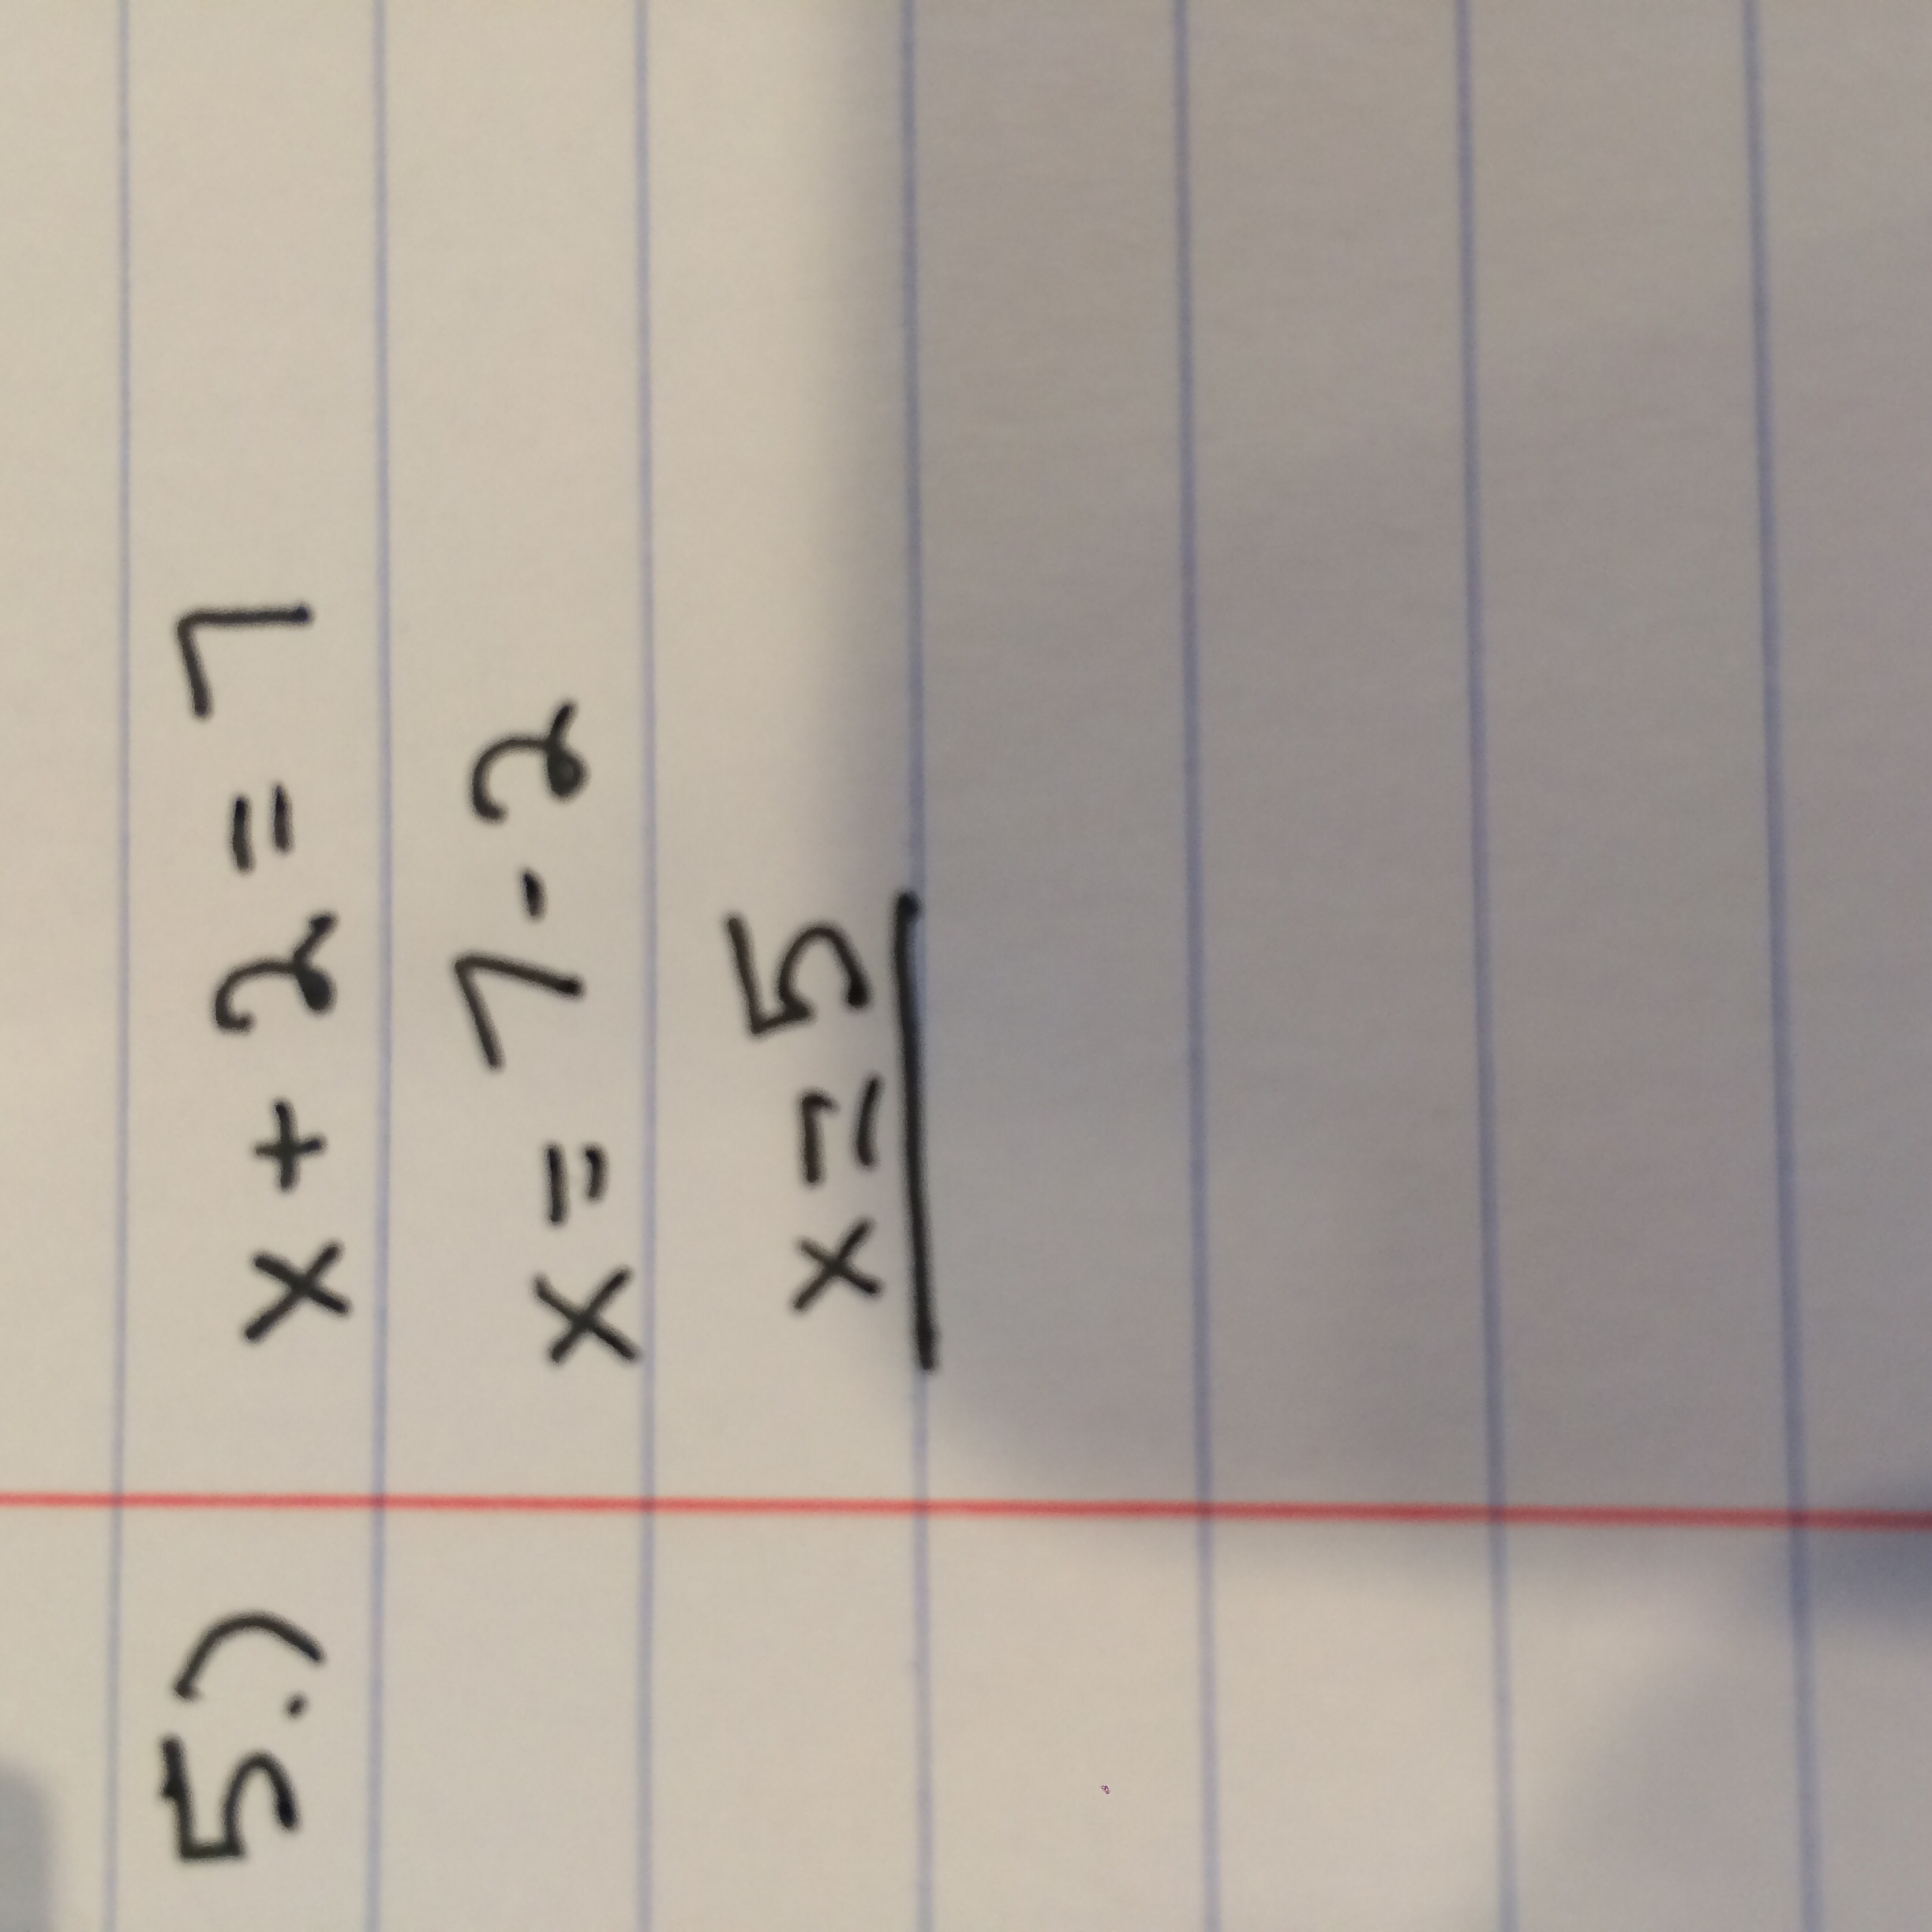 5.) x + 2 = 7
x = 7 - 2
x = 5